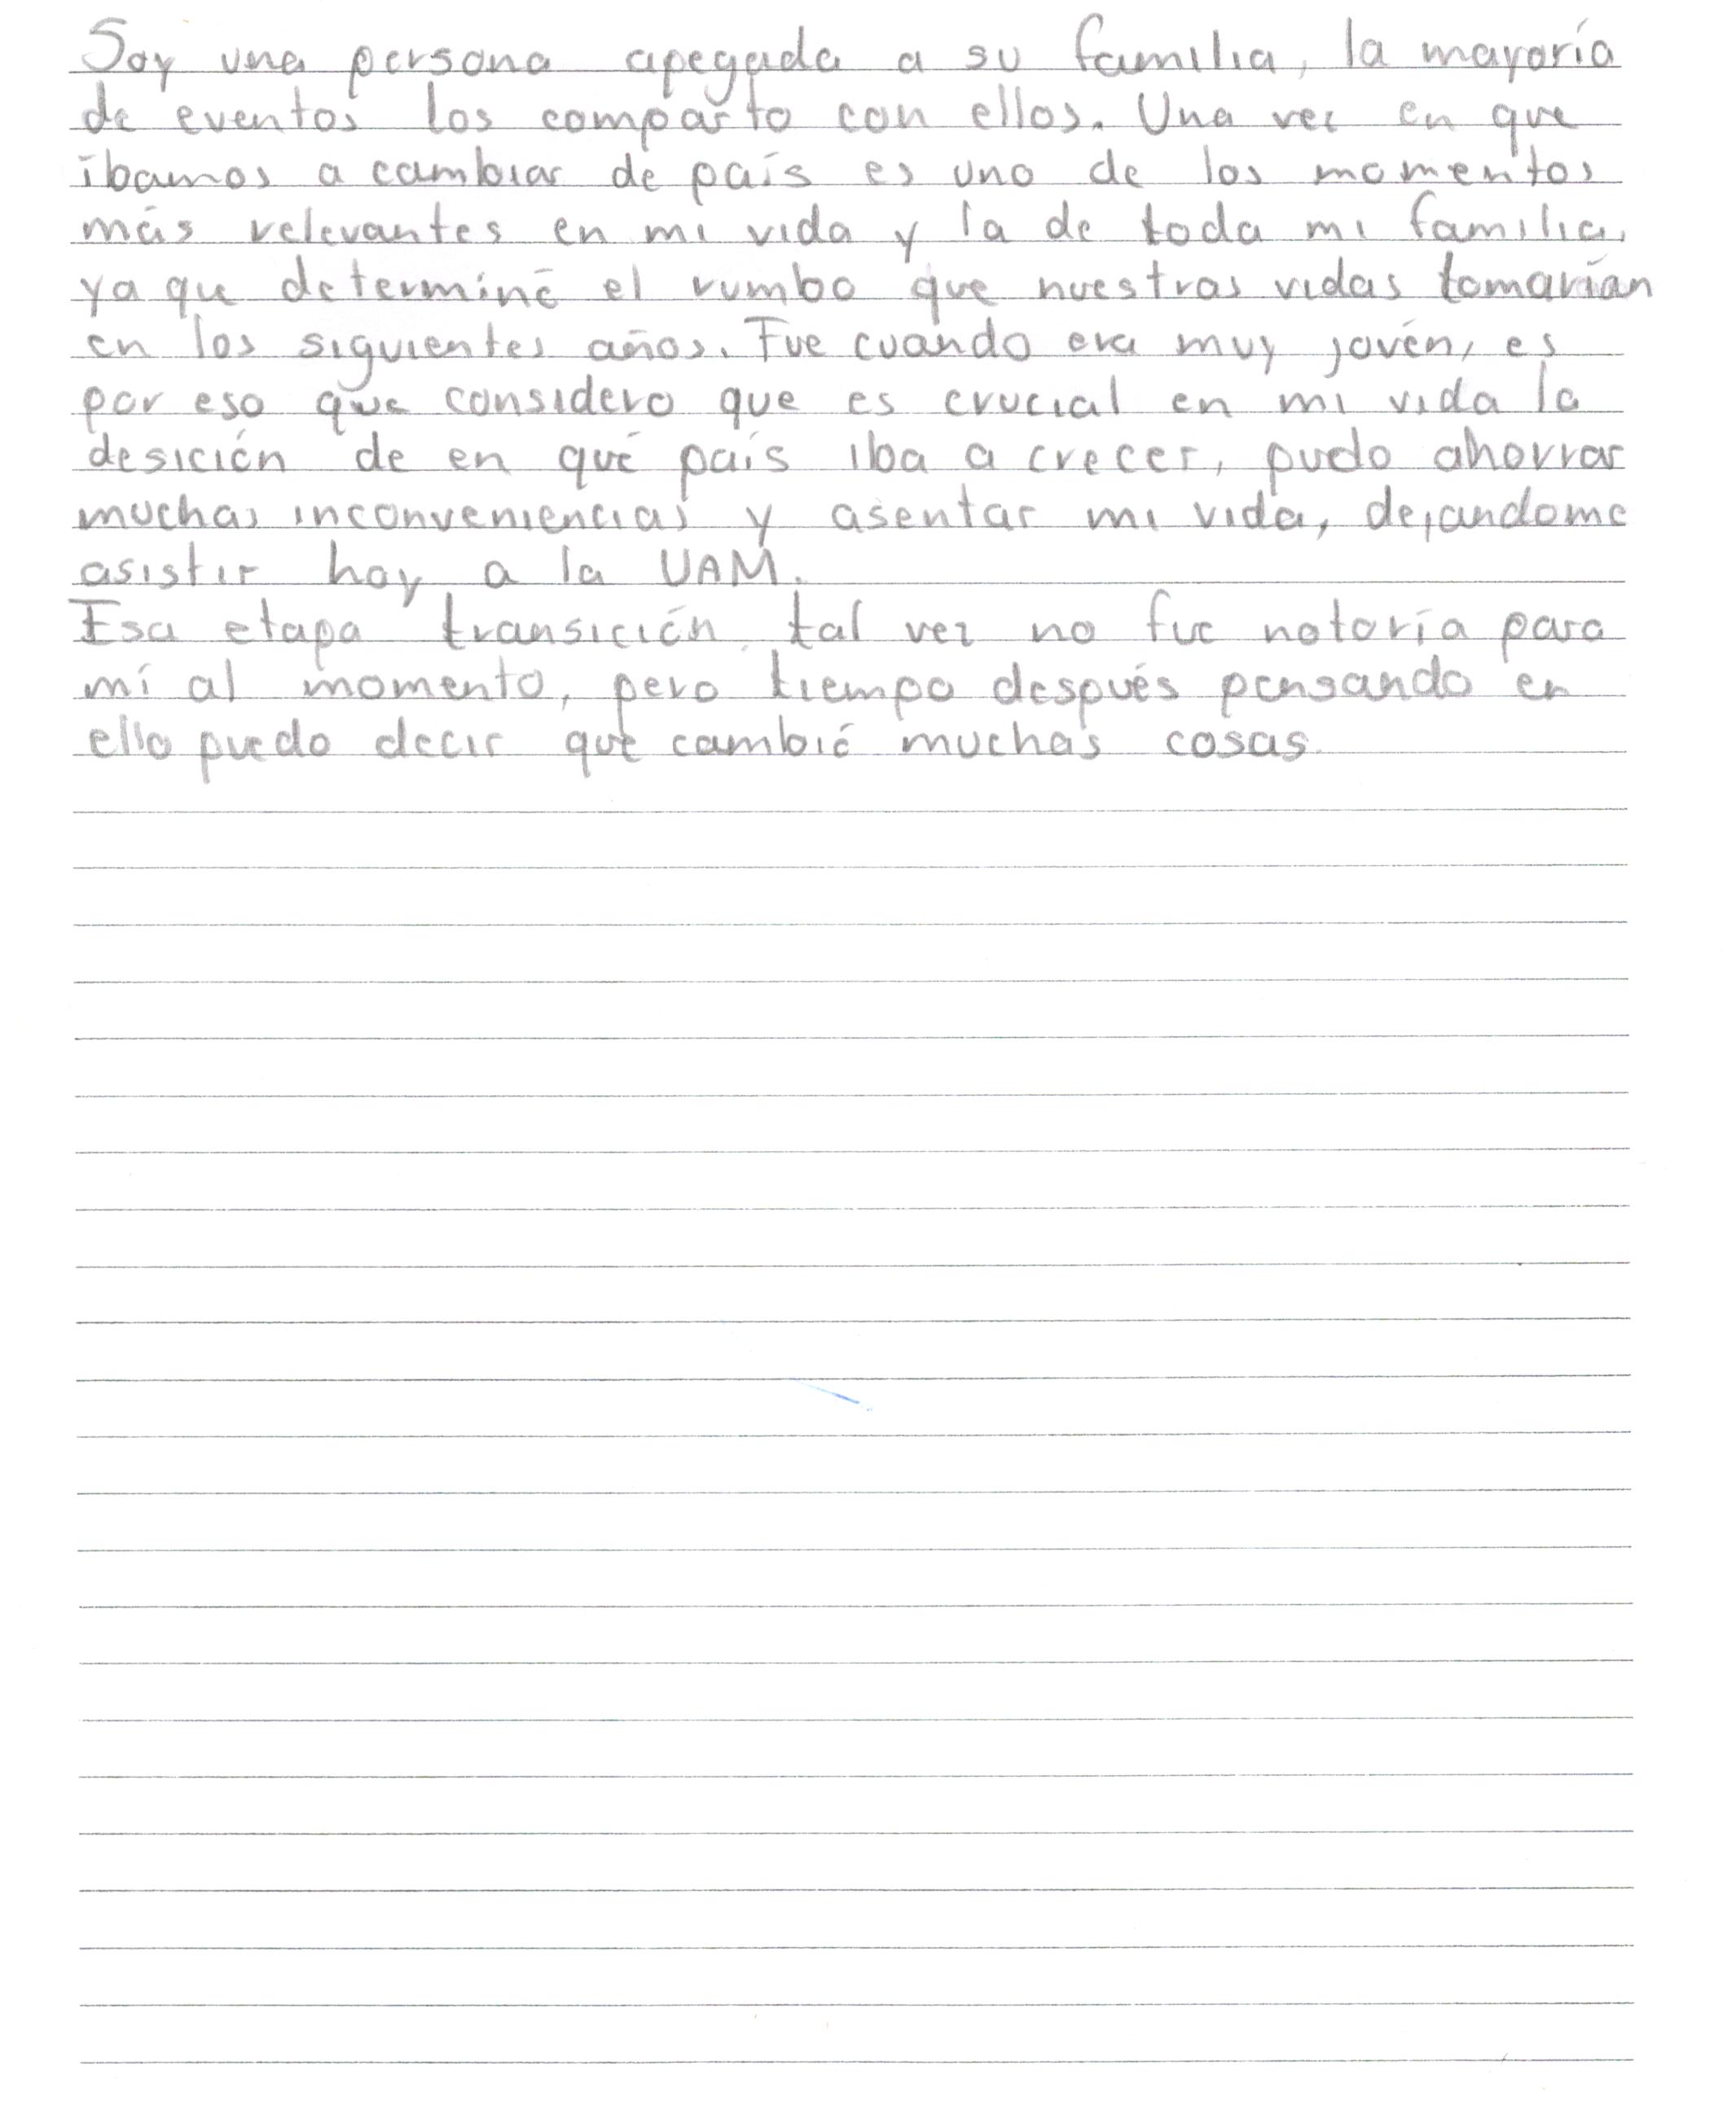 Soy una persona apegada a su familia, la mayoría
de eventos los comparto con ellos. Una vez en que
íbamos a cambiar de país es uno de los momentos
más relevantes en mi vida y la de toda mi familia,
ya que determinó el rumbo que nuestras vidas tomarían
en los siguientes años. Fue cuando era muy jovén, es
por eso que considero que es crucial en mi vida la
desición de en qué país iba a crecer, pudo ahorrar
muchas inconveniencias y asentar mi vida, dejandome
asistir hoy a la UAM.
Esa etapa transición tal vez no fue notoria para
mí al momento, pero tiempo después pensando en
ello puedo decir que cambió muchas cosas.